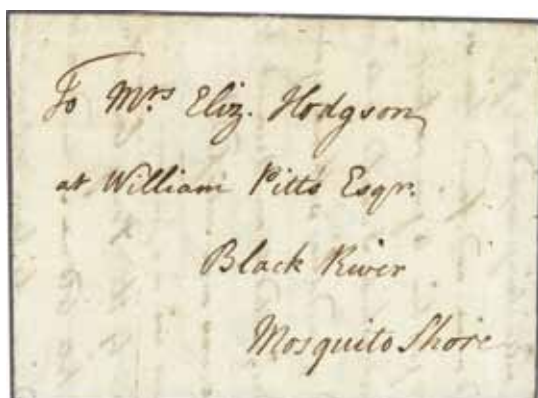 To Mrs Eliz. Hodgson
at William Pitts Esqr.
Black River
Mosquito Shore